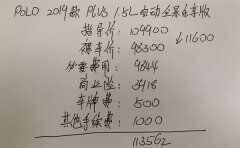 POLO 2019款 PLUS 1.5L 自动全景乐享版
指导价: 109900
裸车价: 98300 ↓11600
必要费用: 9844
商业险: 3918
车牌费: 500
其他手续费: 1000
113562